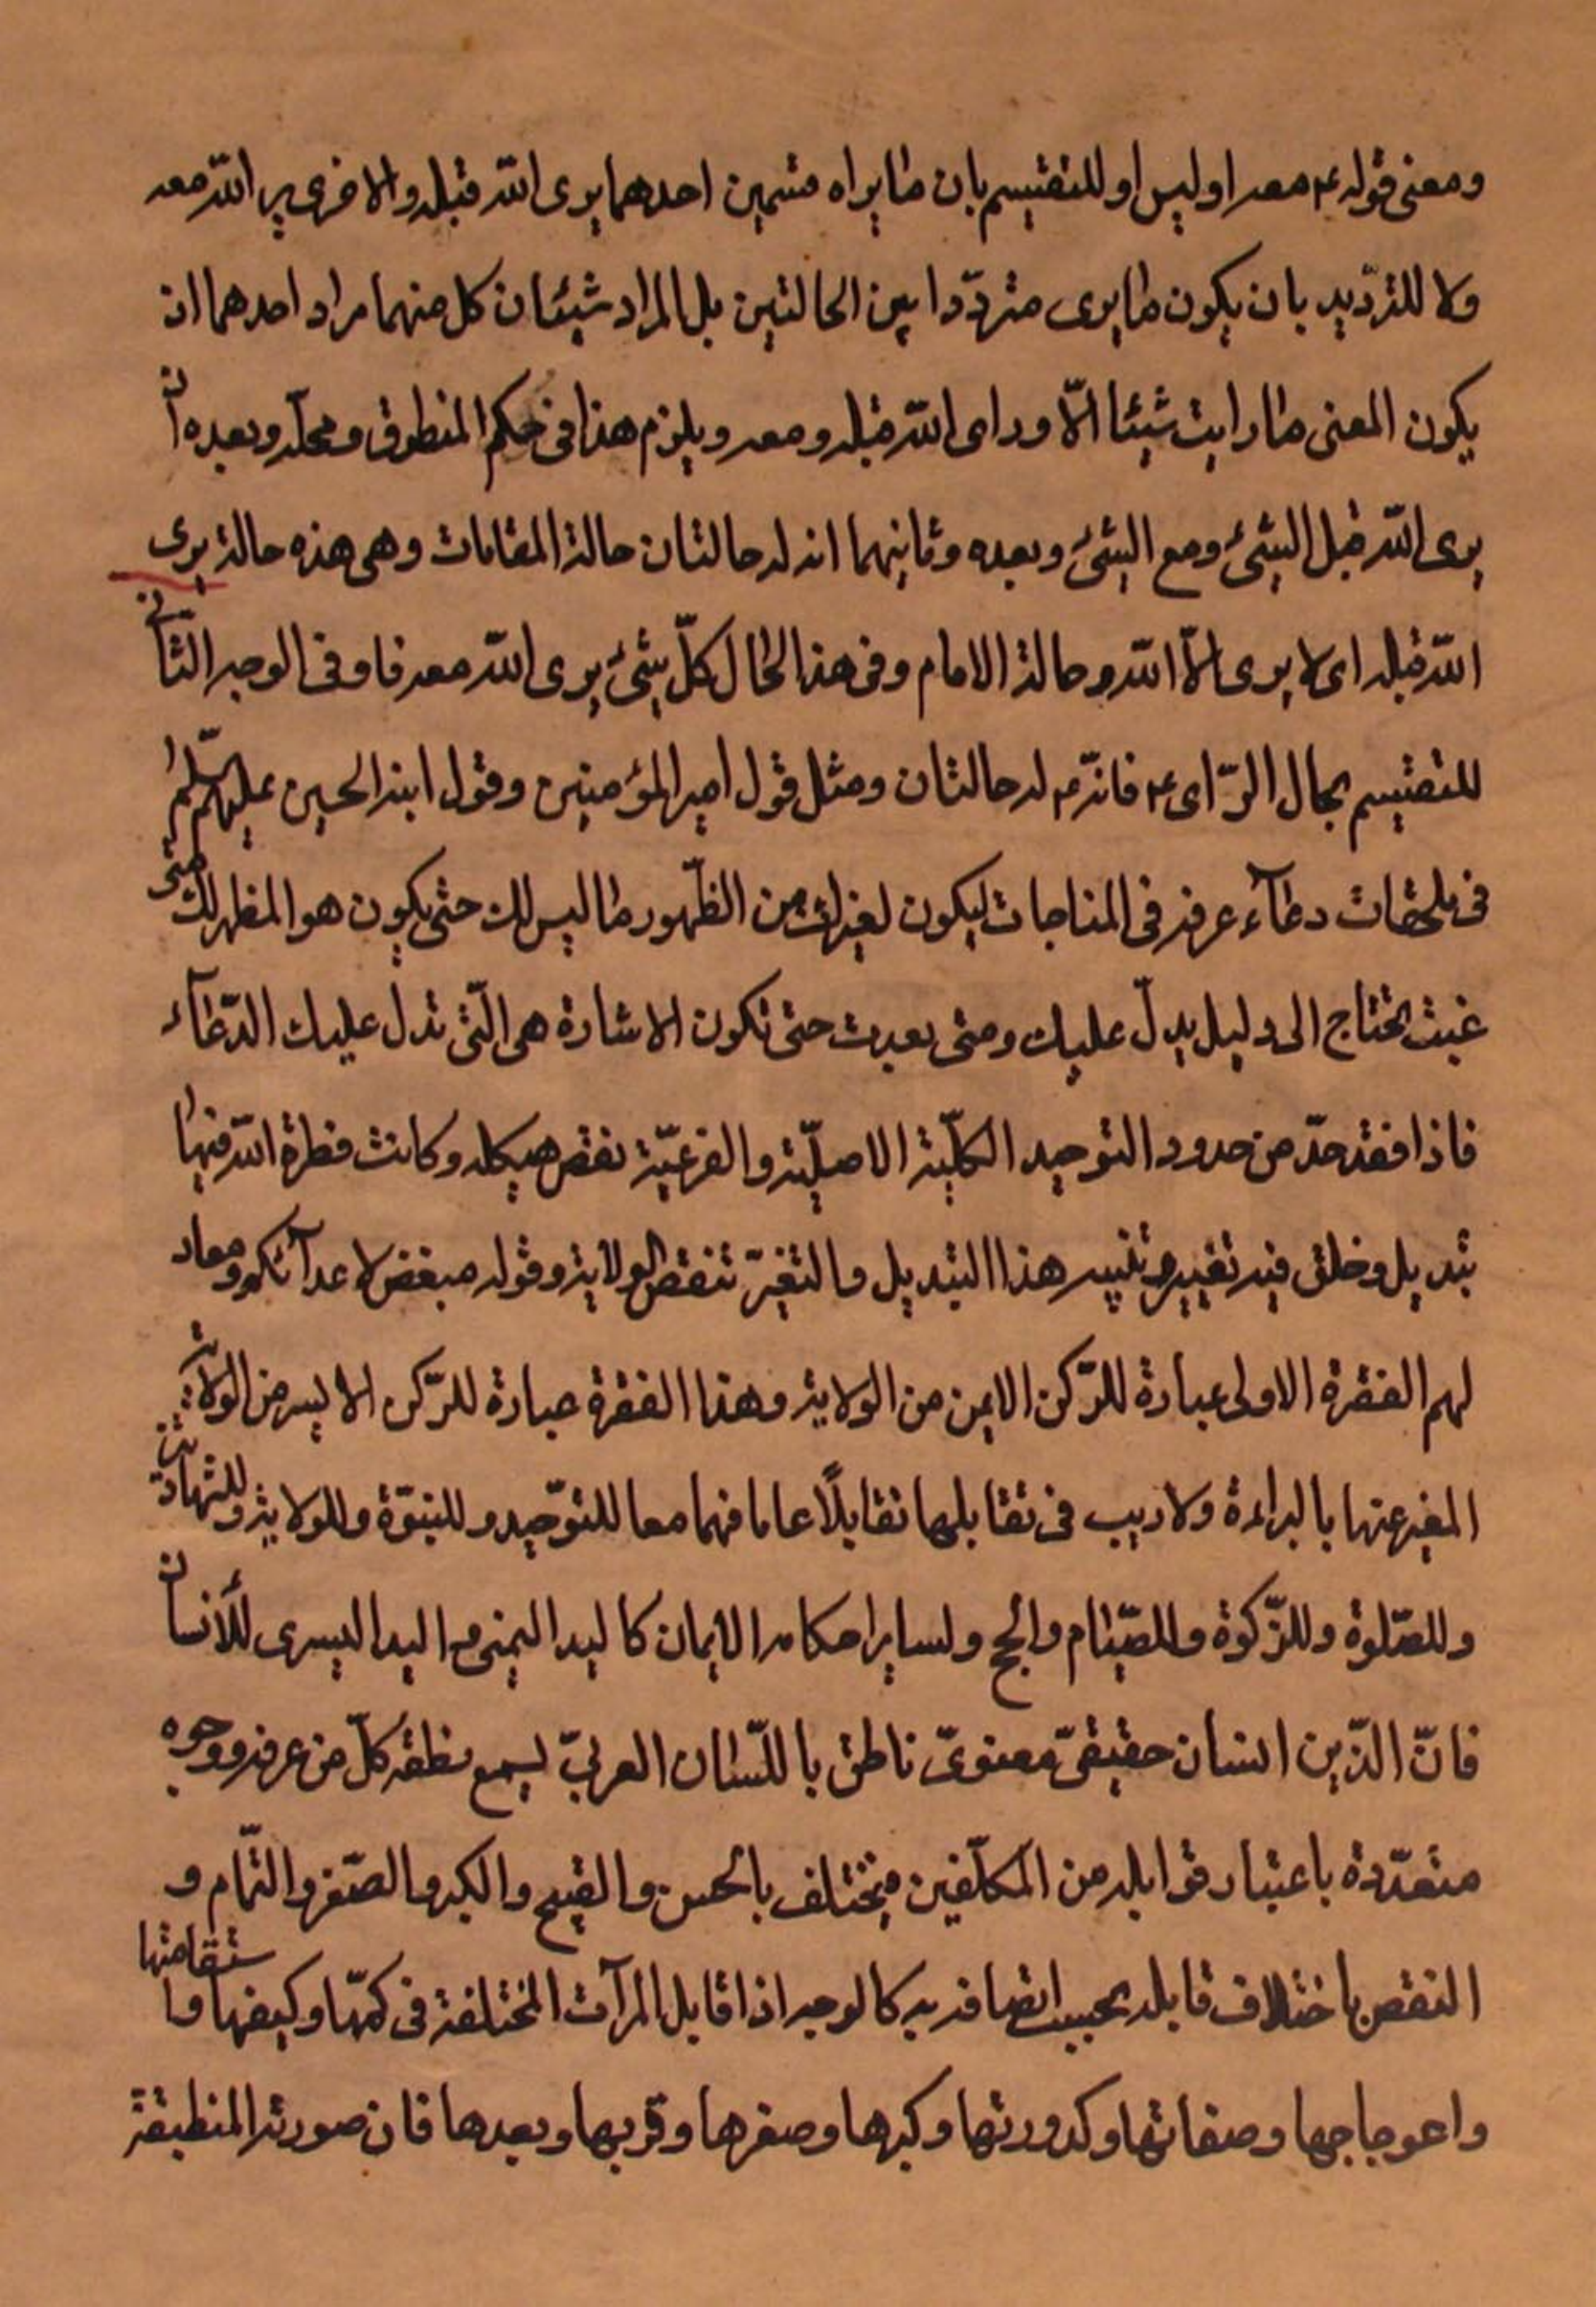 ومعنى قوله ع معه او ليس او للتقسيم بان ما يراه قسمين احدهما يرى الله قبله والاخرى ير الله معه
ولا للترديد بان يكون ما يرى متردّدا بين الحالتين بل المراد شيئان كل منهما مراد احدهما ان
يكون المعنى ما رايت شيئا الّا وراى الله قبله ومعه ويلزم هذا فى حكم المنطوق ومحلّه وبعده ان
يرى الله قبل الشئ ومع الشئ وبعده وثانيهما انه له حالتان حالة المقامات وهى هذه حالة يرى
الله قبله اى لا يرى الّا الله وحالة الامام وفى هذا الحال كلّ شئ يرى الله معه فاو فى الوجه الثانى
للتقسيم بحال الرّاى ع فانّه ع له حالتان ومثل قول امير المؤمنين وقول ابنه الحسين عليهم السّلم
فى ملحقات دعآء عرفه فى المناجات ليكون لغيرك من الظّهور ما ليس لك حتى يكون هو المظهر لك متى
غبت تحتاج الى دليل يدلّ عليك ومتى بعدت حتى تكون الاشارة هى الّتى تدل عليك الدّعآء
فاذا فقد حدّ من حدود التوحيد الكلّية الاصليّة والفرعيّة نقص هيكله وكانت فطرة الله فيها
تبديل وخلق فيه تغيير هذا التبديل والتغيّر تنقص الولاية وقوله مبغض لاعدآئكم ومعاد
لهم الفقرة الاولى عبارة للرّكن الايمن من الولاية وهذا الفقرة عبارة للرّكن الايسر من الولاية
المغير عنها بالبراءة ولا ريب فى تقابلهما تقابلًا عاما فهما معا للتوّحيد وللنبوّة وللولاية وللشهادتين
وللصّلوة وللزّكوة وللصّيام والحج ولساير احكام الايمان كاليد اليمنى مع اليد اليسرى للأنسان
فانّ الدّين انسان حقيقىّ معنوىّ ناطق باللّسان العربىّ يسمع نطقه كلّ من عرفه ووجوه
متعدّدة باعتبار قوابله من المكلّفين فيختلف بالحسن والقبح والكبر والصّغر والتّمام و
النقص باختلاف قابله بحسب اتصافه به كالوجه اذا قابل المرآت المختلفة فى كمّها وكيفها واستقامتها
واعوجاجها وصفائها وكدورتها وكبرها وصغرها وقربها وبعدها فان صورته المنطبقة